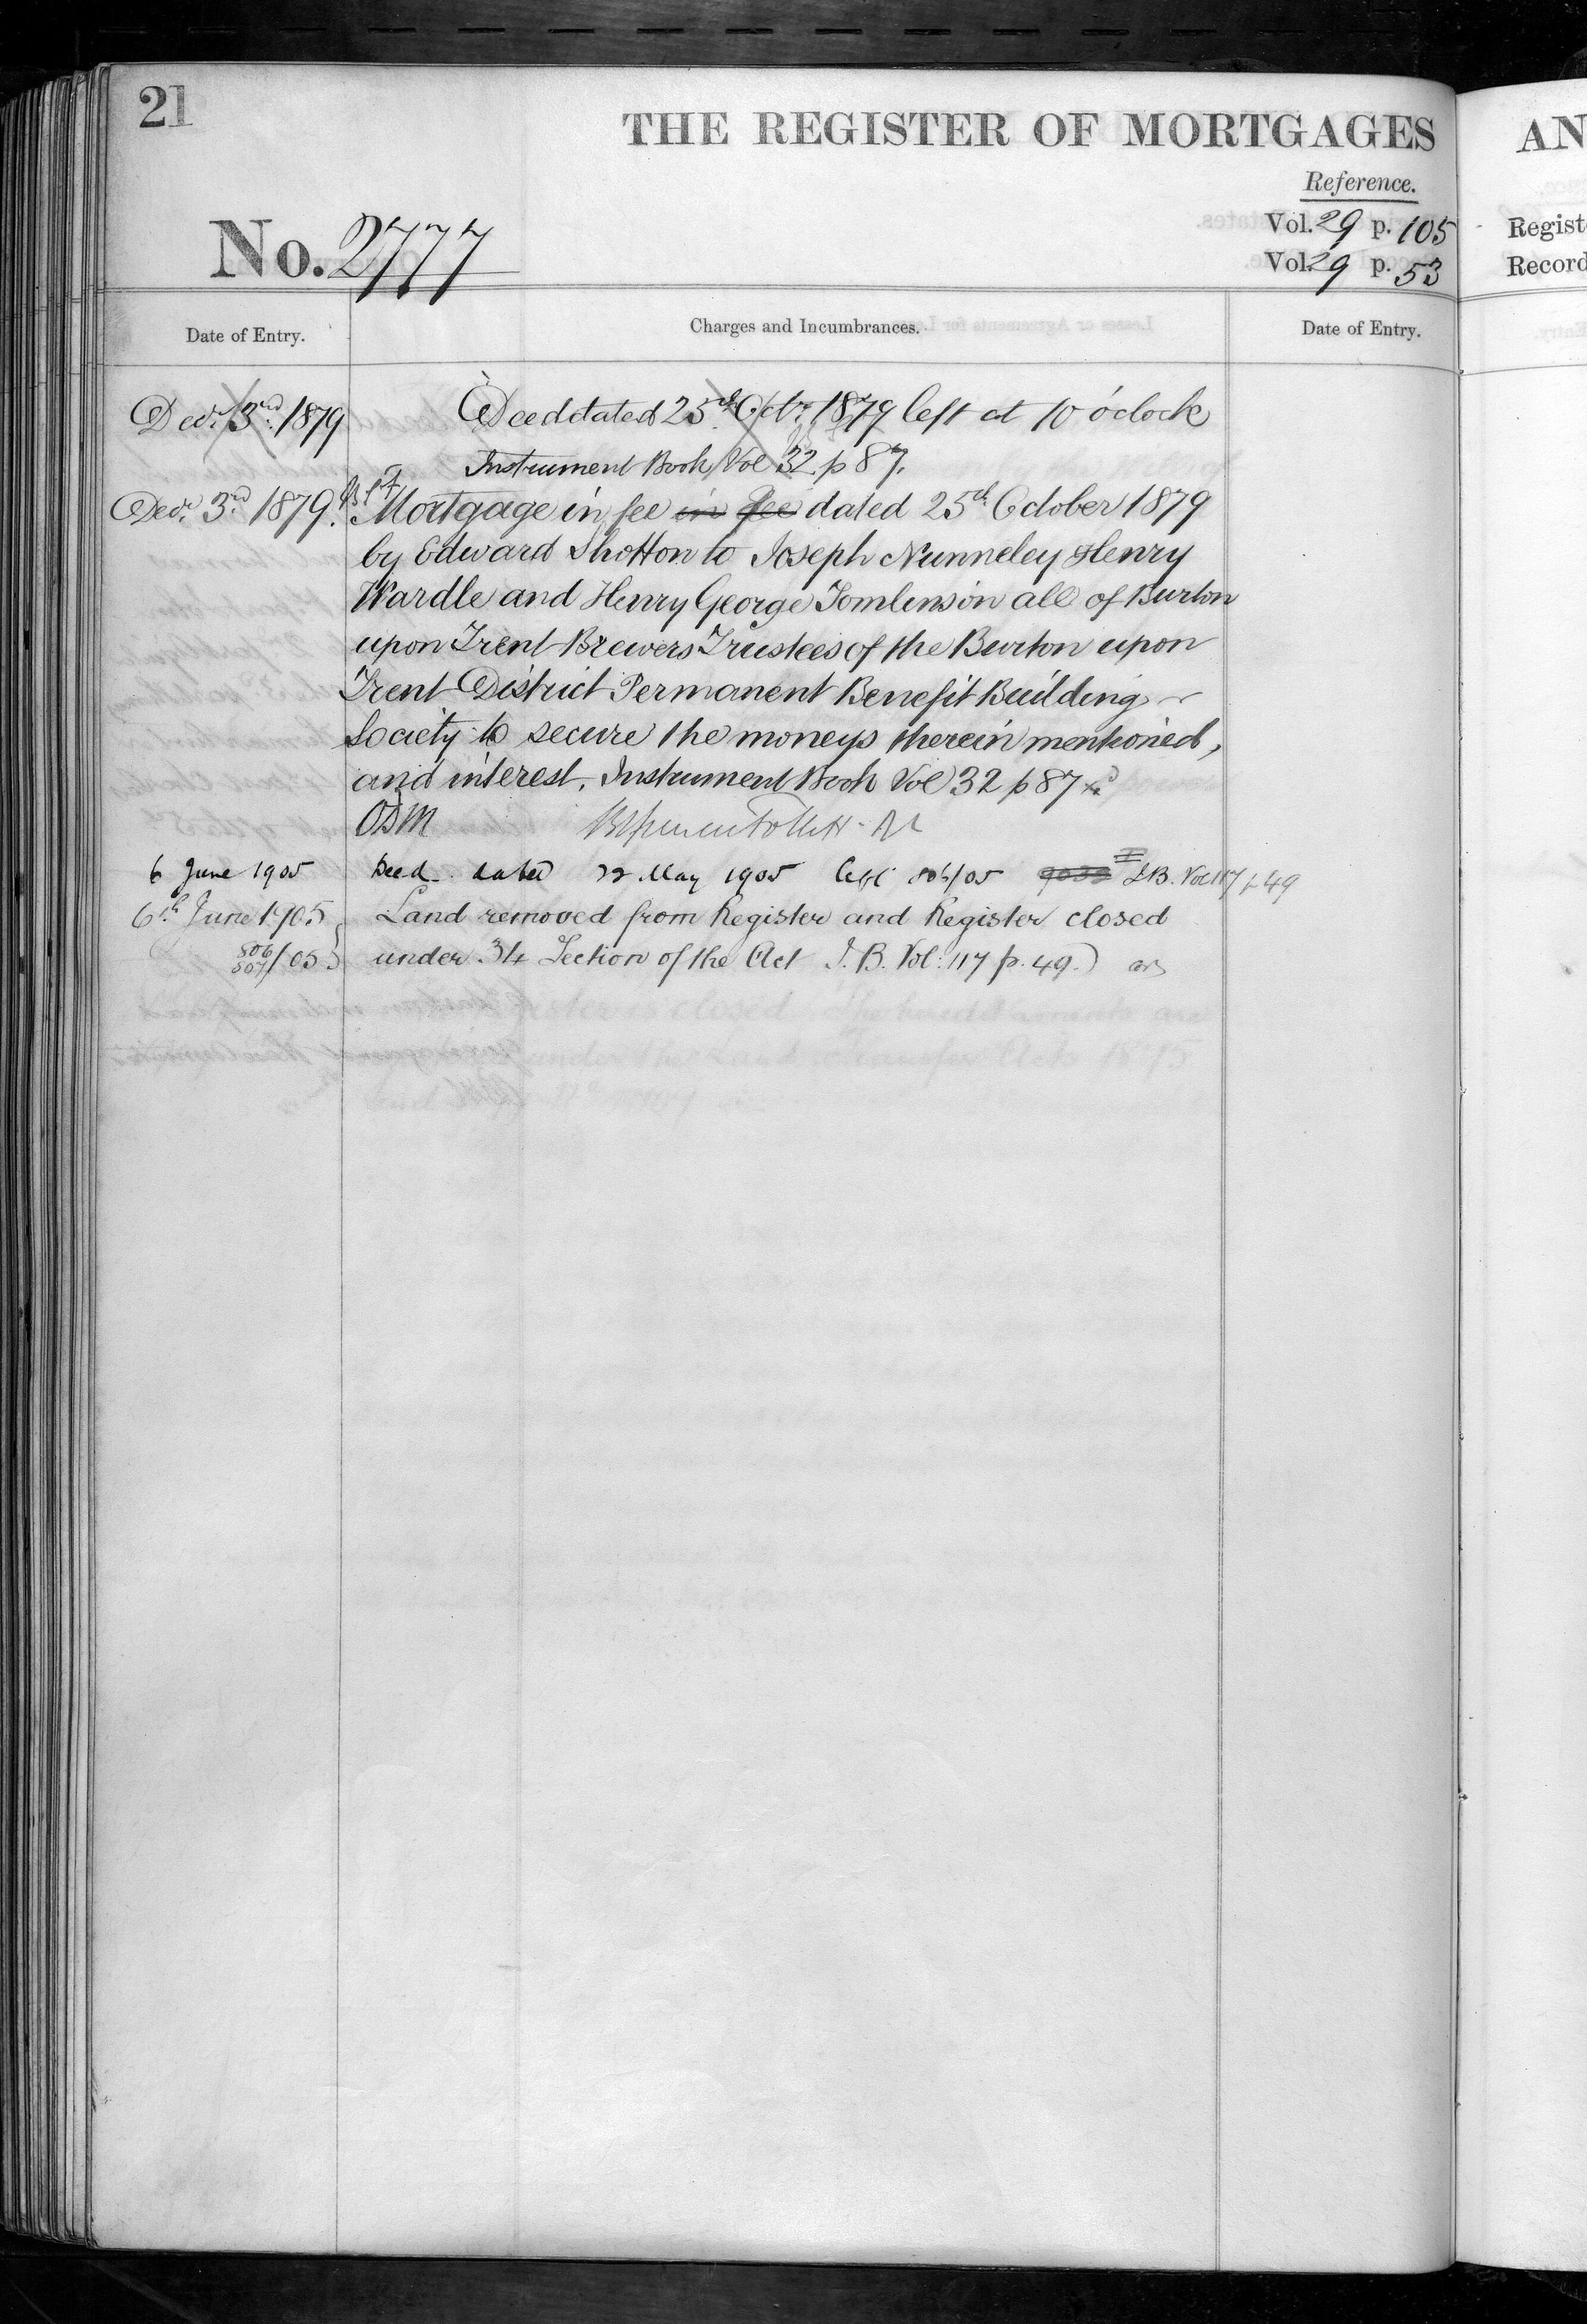 21
THE REGISTER OF MORTGAGES
Reference.
No. 2777
Vol. 29 p. 105
Vol. 29 p. 53
Date of Entry.
Charges and Incumbrances.
Date of Entry.
Decr. 3rd. 1879
Deed dated 25th Octr. 1879 left at 10 o'clock
Instrument Book Vol 32 p 87.
Decr. 3rd 1879.
Mortgage in fee in fee dated 25th October 1879
by Edward Shotton to Joseph Nunneley Henry
Wardle and Henry George Tomlinson all of Burton
upon Trent Brewers Trustees of the Burton upon
Trent District Permanent Benefit Building
Society to secure the moneys therein mentioned,
and interest. Instrument Book Vol 32 p 87
6 June 1905
Deed dated 22 May 1905 left 806/05 I.B. Vol 117 p 49
6th June 1905
Land removed from Register and Register closed
806/807/05
under 34 Section of the Act I.B. Vol: 117 p. 49.
AN
Regist
Record